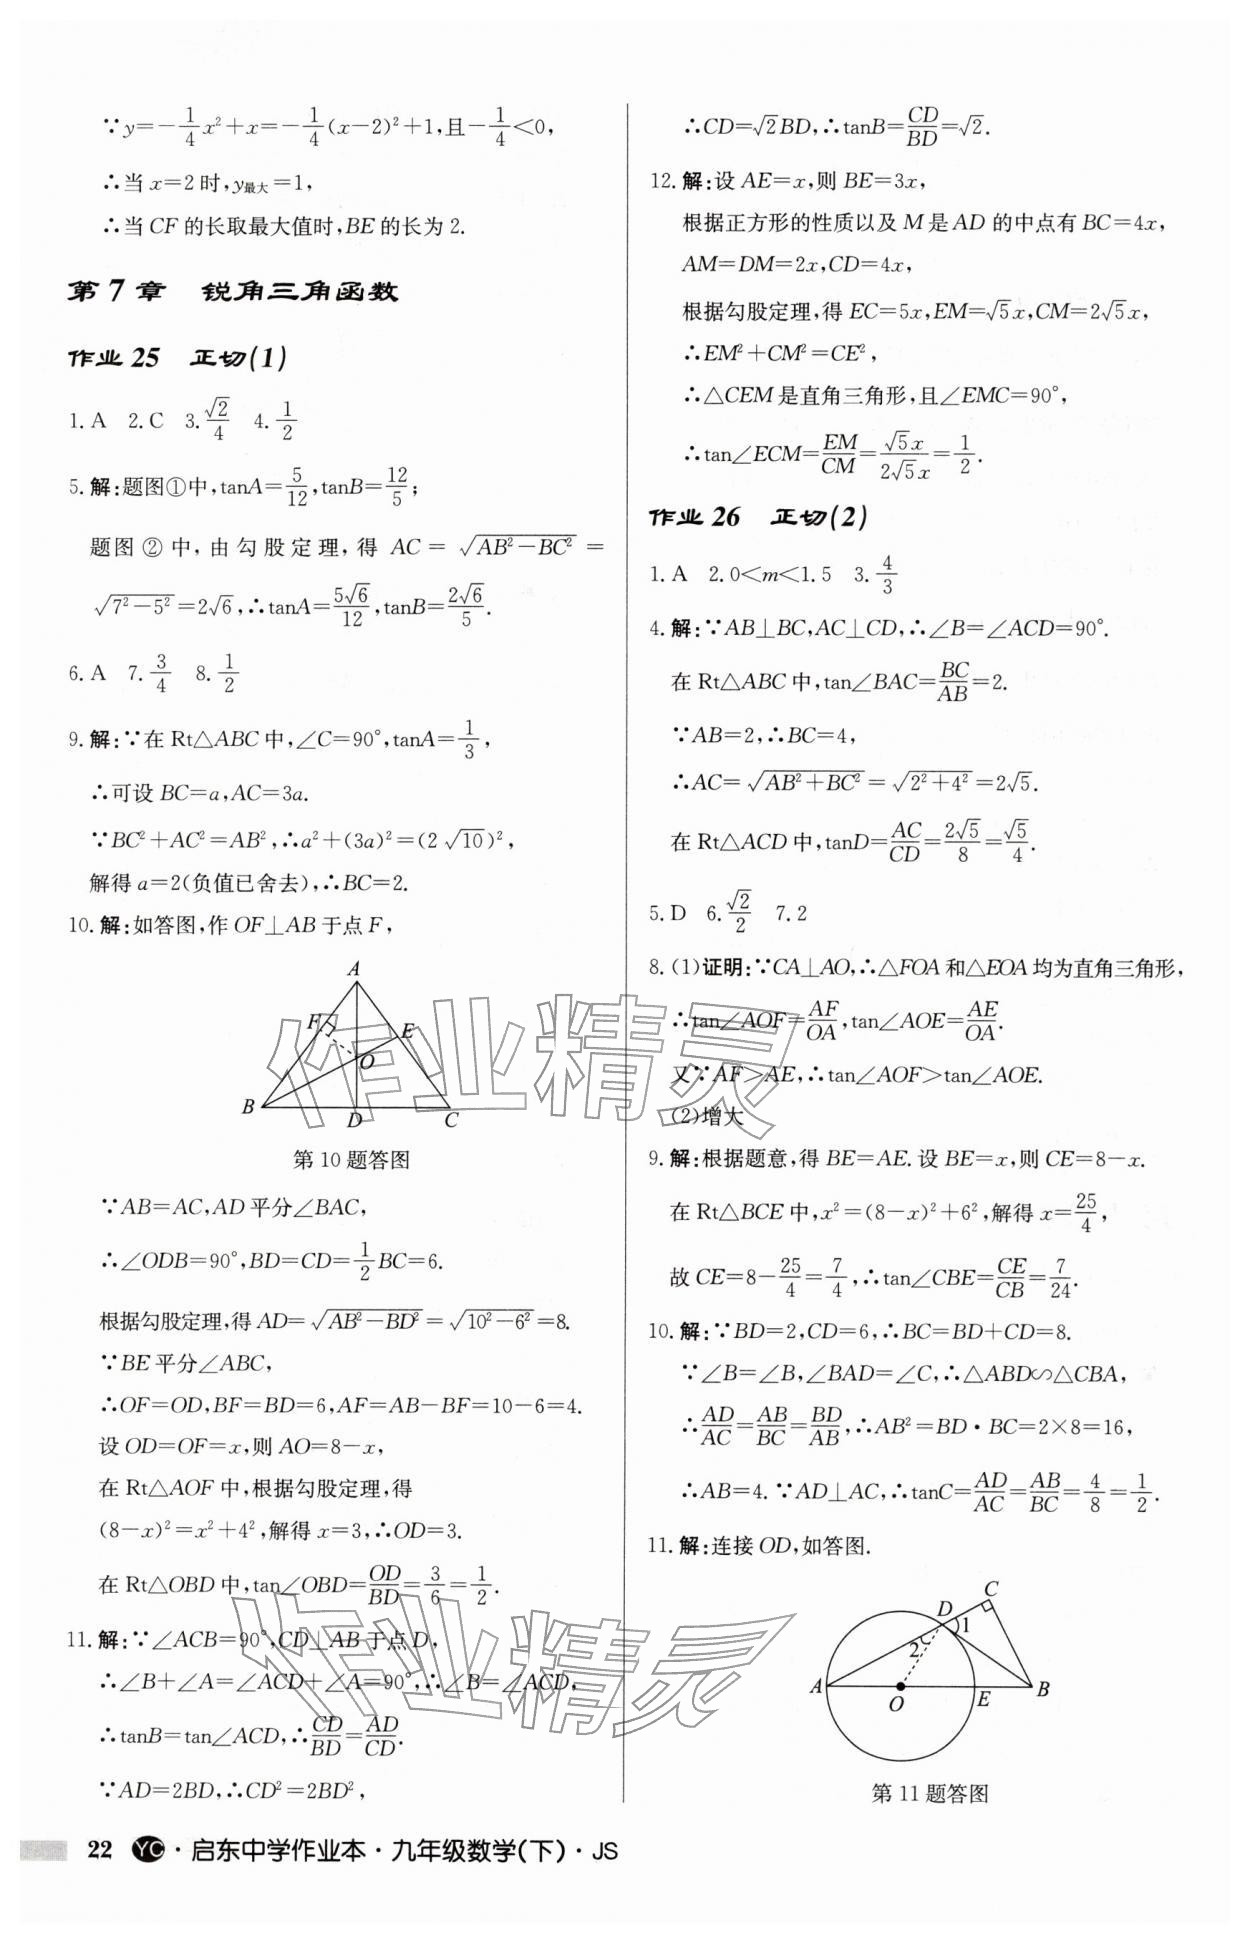 ∵y=-1/4x²+x=-1/4(x-2)²+1,且-1/4<0,
∴当 x=2 时,y最大=1,
∴当 CF 的长取最大值时,BE 的长为 2.
第 7 章 锐角三角函数
作业 25 正切(1)
1. A 2. C 3. √2/4 4. 1/2
5. 解:题图①中,tanA=5/12,tanB=12/5;
题图②中,由勾股定理,得 AC=√(AB²-BC²)=
√(7²-5²)=2√6,∴tanA=5√6/12,tanB=2√6/5.
6. A 7. 3/4 8. 1/2
9. 解:∵在 Rt△ABC 中,∠C=90°,tanA=1/3,
∴可设 BC=a,AC=3a.
∵BC²+AC²=AB²,∴a²+(3a)²=(2√10)²,
解得 a=2(负值已舍去),∴BC=2.
10. 解:如答图,作 OF⊥AB 于点 F,
A
F
E
O
B
D
C
第 10 题答图
∵AB=AC,AD 平分∠BAC,
∴∠ODB=90°,BD=CD=1/2BC=6.
根据勾股定理,得 AD=√(AB²-BD²)=√(10²-6²)=8.
∵BE 平分∠ABC,
∴OF=OD,BF=BD=6,AF=AB-BF=10-6=4.
设 OD=OF=x,则 AO=8-x,
在 Rt△AOF 中,根据勾股定理,得
(8-x)²=x²+4²,解得 x=3,∴OD=3.
在 Rt△OBD 中,tan∠OBD=OD/BD=3/6=1/2.
11. 解:∵∠ACB=90°,CD⊥AB 于点 D,
∴∠B+∠A=∠ACD+∠A=90°,∴∠B=∠ACD,
∴tanB=tan∠ACD,∴CD/BD=AD/CD.
∵AD=2BD,∴CD²=2BD²,
∴CD=√2BD,∴tanB=CD/BD=√2.
12. 解:设 AE=x,则 BE=3x,
根据正方形的性质以及 M 是 AD 的中点有 BC=4x,
AM=DM=2x,CD=4x,
根据勾股定理,得 EC=5x,EM=√5x,CM=2√5x,
∴EM²+CM²=CE²,
∴△CEM 是直角三角形,且∠EMC=90°,
∴tan∠ECM=EM/CM=√5x/2√5x=1/2.
作业 26 正切(2)
1. A 2. 0<m<1.5 3. 4/3
4. 解:∵AB⊥BC,AC⊥CD,∴∠B=∠ACD=90°.
在 Rt△ABC 中,tan∠BAC=BC/AB=2.
∵AB=2,∴BC=4,
∴AC=√(AB²+BC²)=√(2²+4²)=2√5.
在 Rt△ACD 中,tanD=AC/CD=2√5/8=√5/4.
5. D 6. √2/2 7. 2
8. (1)证明:∵CA⊥AO,∴△FOA 和△EOA 均为直角三角形,
∴tan∠AOF=AF/OA,tan∠AOE=AE/OA.
又∵AF>AE,∴tan∠AOF>tan∠AOE.
(2)增大
9. 解:根据题意,得 BE=AE. 设 BE=x,则 CE=8-x.
在 Rt△BCE 中,x²=(8-x)²+6²,解得 x=25/4,
故 CE=8-25/4=7/4,∴tan∠CBE=CE/CB=7/24.
10. 解:∵BD=2,CD=6,∴BC=BD+CD=8.
∵∠B=∠B,∠BAD=∠C,∴△ABD∽△CBA,
∴AD/AC=AB/BC=BD/AB,∴AB²=BD·BC=2×8=16,
∴AB=4. ∵AD⊥AC,∴tanC=AD/AC=AB/BC=4/8=1/2.
11. 解:连接 OD,如答图.
C
D
1
2
A
O
E
B
第 11 题答图
22 YC·启东中学作业本·九年级数学(下)·JS
作业精灵
作业精灵